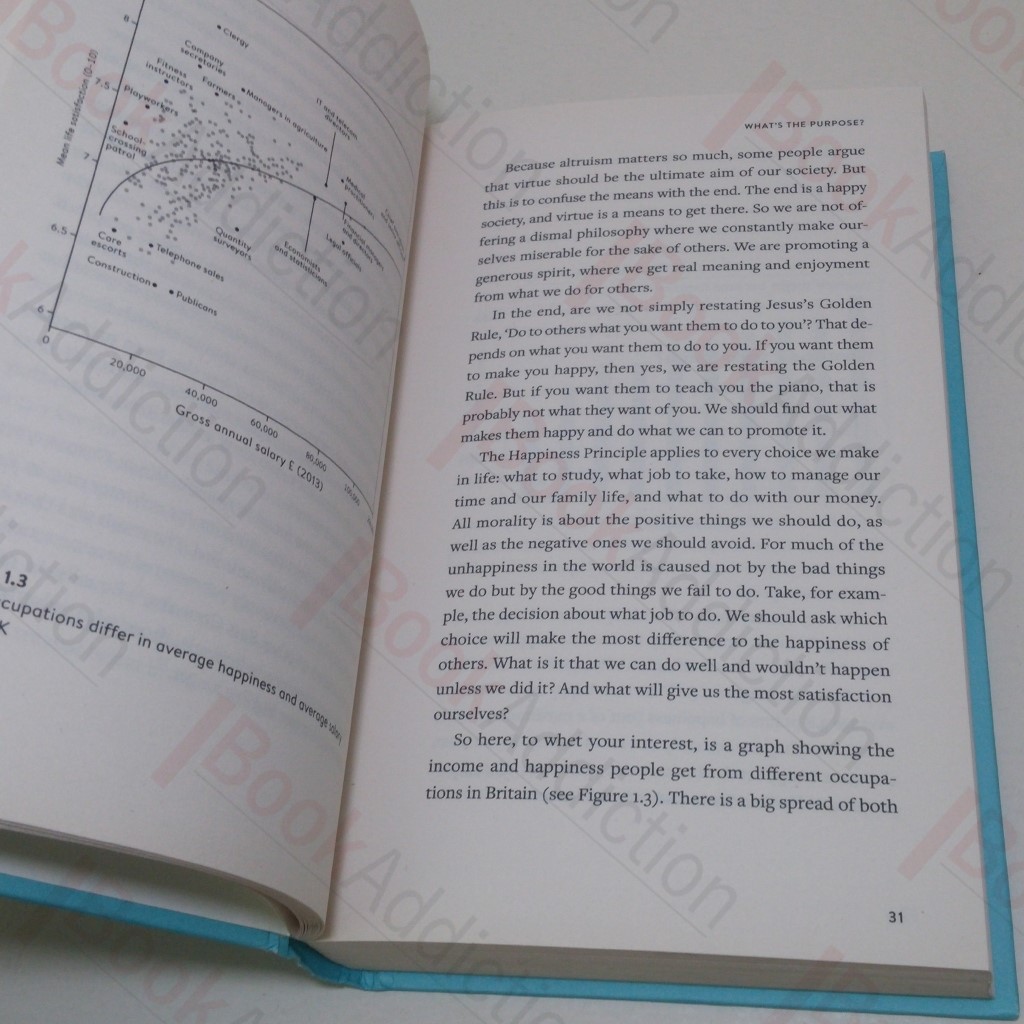 8
Clergy
Company
secretaries
Fitness
instructors
Farmers
Managers in agriculture
IT and telecom
directors
7.5
Playworkers
School-
crossing
patrol
Mean life satisfaction (0–10)
7
Medical
practitioners
Legal
officials
Economists
and statisticians
Quantity
surveyors
6.5
Care
escorts
Telephone sales
Construction
Publicans
6
0
20,000
40,000
60,000
80,000
Gross annual salary £ (2013)
1.3
cupations differ in average happiness and average salary
K
WHAT'S THE PURPOSE?
Because altruism matters so much, some people argue
that virtue should be the ultimate aim of our society. But
this is to confuse the means with the end. The end is a happy
society, and virtue is a means to get there. So we are not of-
fering a dismal philosophy where we constantly make our-
selves miserable for the sake of others. We are promoting a
generous spirit, where we get real meaning and enjoyment
from what we do for others.
In the end, are we not simply restating Jesus's Golden
Rule, 'Do to others what you want them to do to you'? That de-
pends on what you want them to do to you. If you want them
to make you happy, then yes, we are restating the Golden
Rule. But if you want them to teach you the piano, that is
probably not what they want of you. We should find out what
makes them happy and do what we can to promote it.
The Happiness Principle applies to every choice we make
in life: what to study, what job to take, how to manage our
time and our family life, and what to do with our money.
All morality is about the positive things we should do, as
well as the negative ones we should avoid. For much of the
unhappiness in the world is caused not by the bad things
we do but by the good things we fail to do. Take, for exam-
ple, the decision about what job to do. We should ask which
choice will make the most difference to the happiness of
others. What is it that we can do well and wouldn't happen
unless we did it? And what will give us the most satisfaction
ourselves?
So here, to whet your interest, is a graph showing the
income and happiness people get from different occupa-
tions in Britain (see Figure 1.3). There is a big spread of both
31
Book Addiction